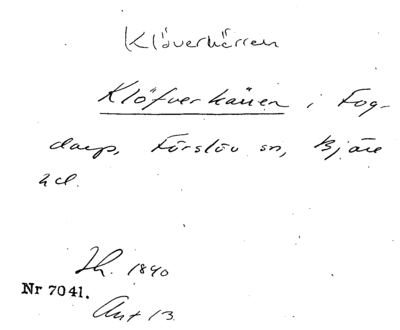 Klöverkärren
Klöfverkärren i Fog-
darp, Förslöv sn, Bjäre
hd.
Lh. 1840
Nr 7041.
Ant 13